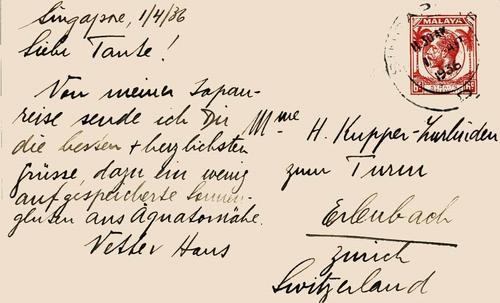 Singapore, 1/4/36
Liebe Tante!
Von meiner Japan-
reise sende ich Dir
die besten + herzlichsten
Grüsse, dazu ein wenig
aufgespeicherte Sonnen-
gluten aus Äquatornähe.
Vetter Hans
MALAYA
1936
Mme H. Kupper-Zurlinden
zum Turm
Erlenbach
Zürich
Switzerland